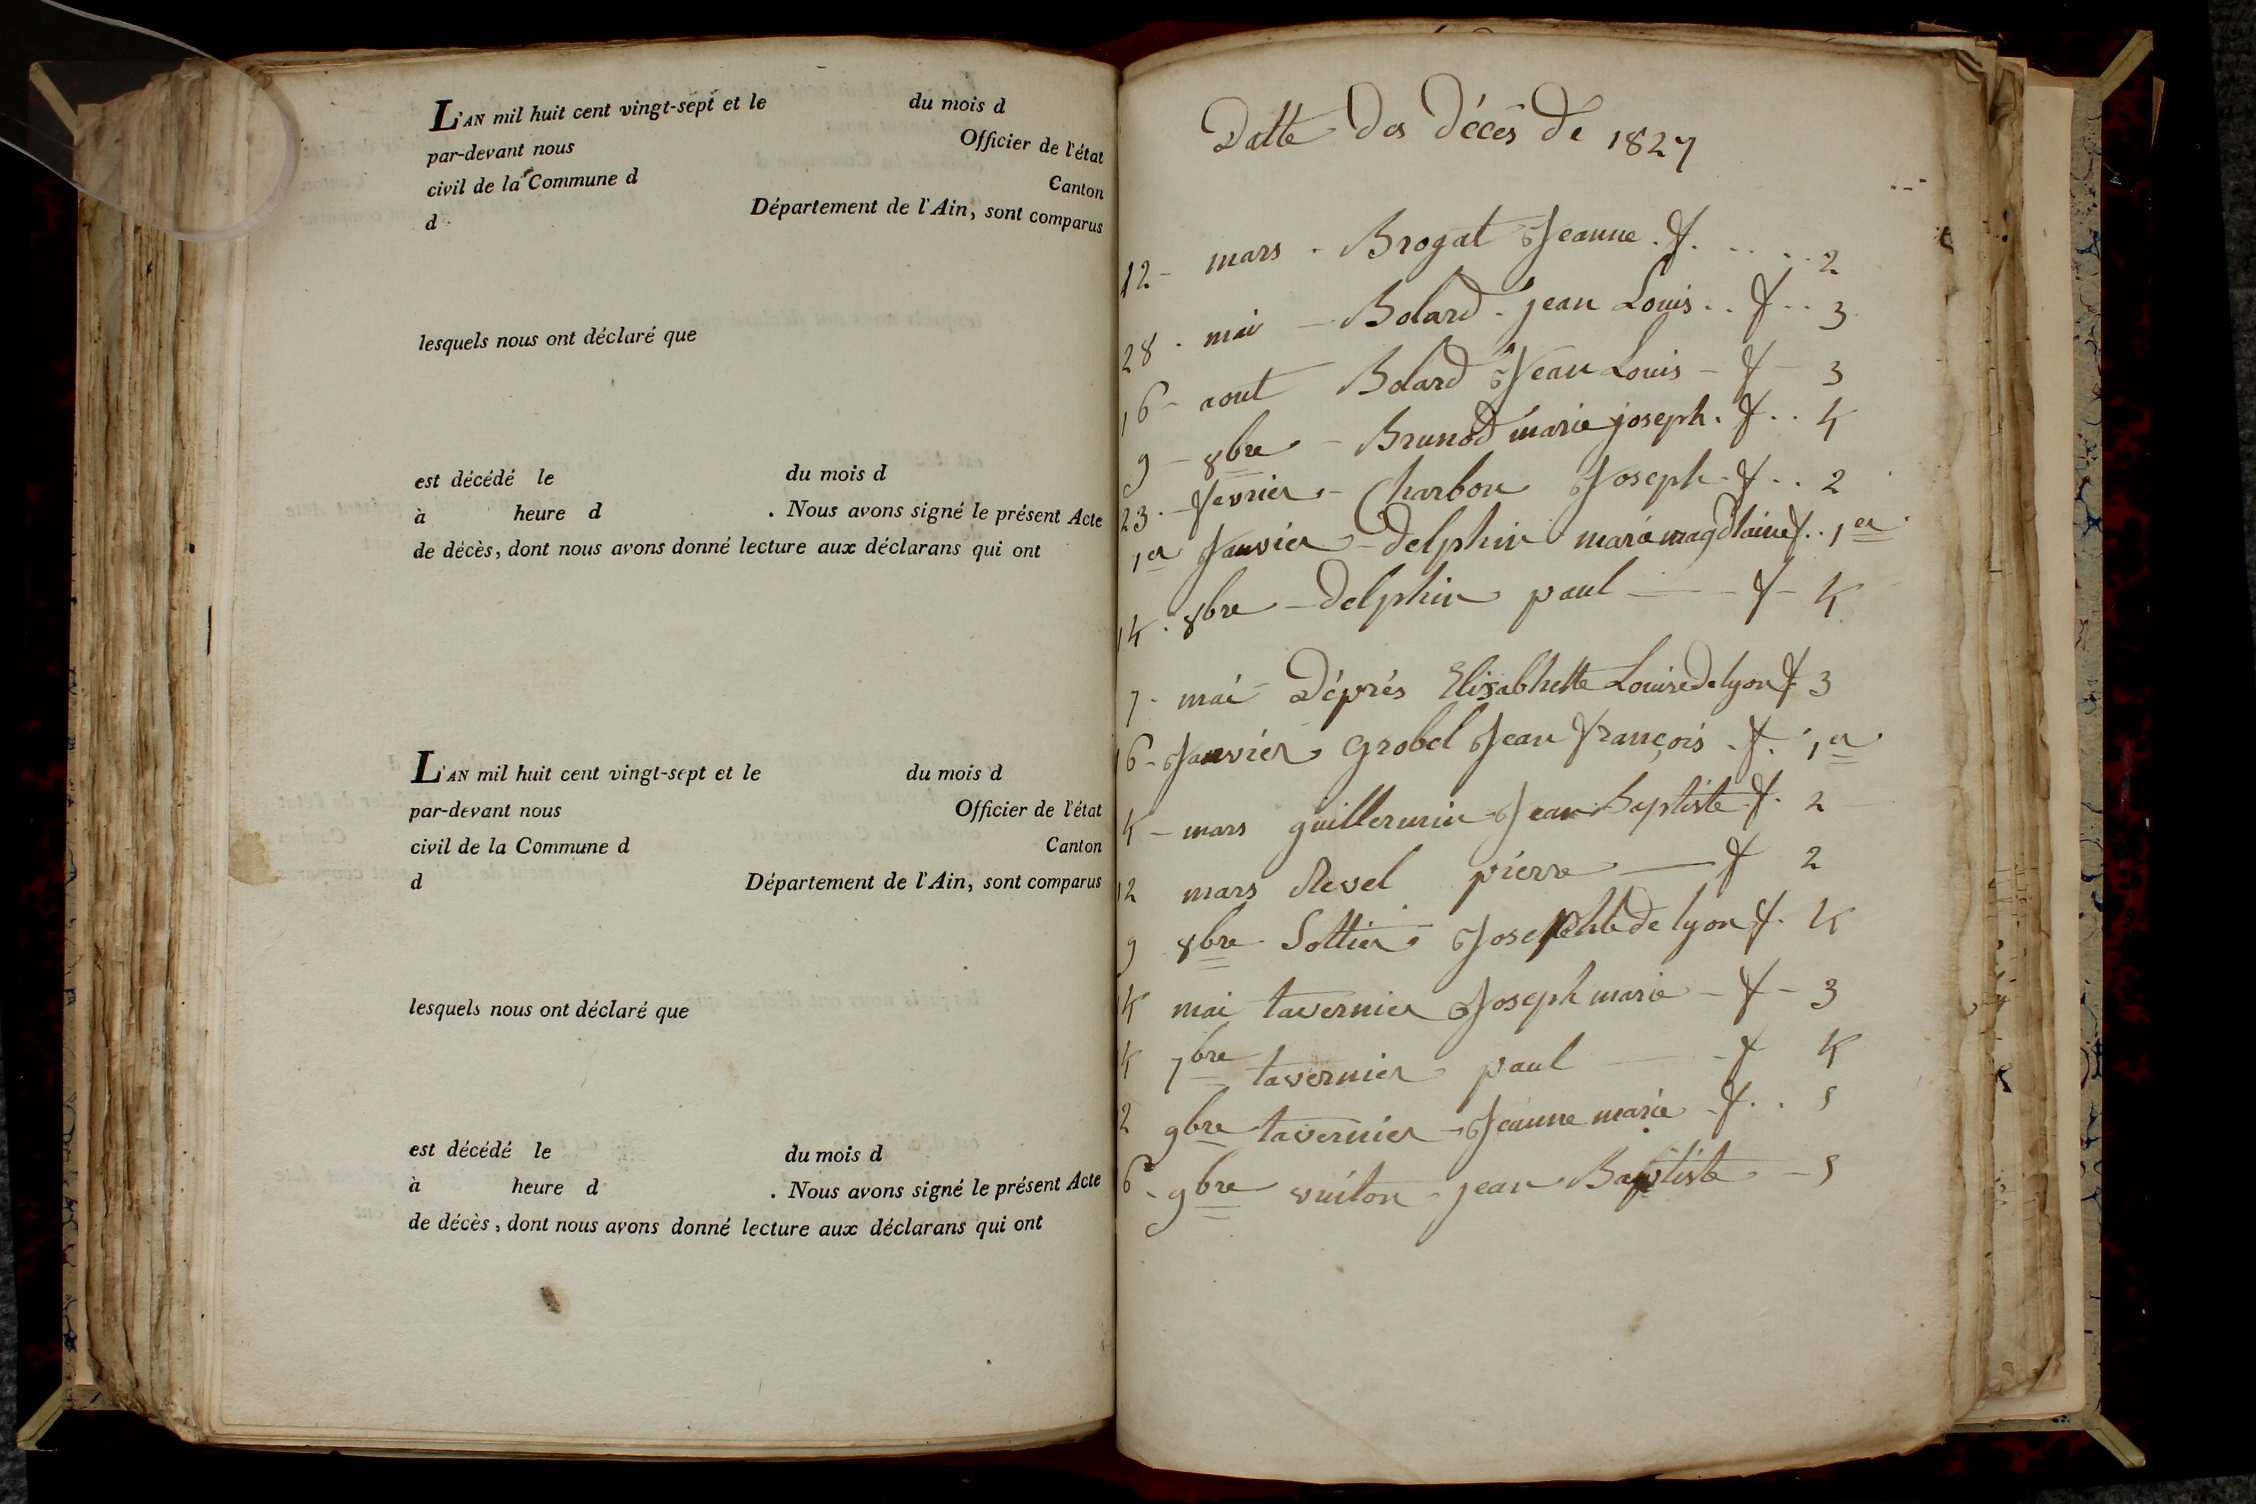 L'AN mil huit cent vingt-sept et le du mois d
par-devant nous Officier de l'état
civil de la Commune d Canton
d Département de l'Ain, sont comparus
lesquels nous ont déclaré que
est décédé le du mois d
à heure d . Nous avons signé le présent Acte
de décès, dont nous avons donné lecture aux déclarans qui ont
L'AN mil huit cent vingt-sept et le du mois d
par-devant nous Officier de l'état
civil de la Commune d Canton
d Département de l'Ain, sont comparus
lesquels nous ont déclaré que
est décédé le du mois d
à heure d . Nous avons signé le présent Acte
de décès, dont nous avons donné lecture aux déclarans qui ont
Datte des décès de 1827
12 - mars - Brogat Jeanne . f. . . . . 2
28 - mai - Bolard - jean Louis . . f . . 3
16 - aout Bolard Jean Louis - f - 3
9 - 8bre - Brunod marie joseph . f . . 4
23 - fevrier - Charbon Joseph - f . . 2
1er Janvier - delphin marie magdlaine f . . 1er
14 - 8bre - delphin paul - f - 4
7 - mai - Déprés Elisabhette Louise de lyon f 3
16 - Janvier Grobel Jean françois . f . 1er
4 - mars guillermin Jean Baptiste f . 2
12 mars Revel pierre - f 2
9 8bre - Sottier Josephte de lyon f . 4
14 mai tavernier Joseph marie - f - 3
4 7bre tavernier paul - f 4
2 9bre tavernier - Jeanne marie - f . . 5
6 - 9bre vuiton - jean Baptiste - 5